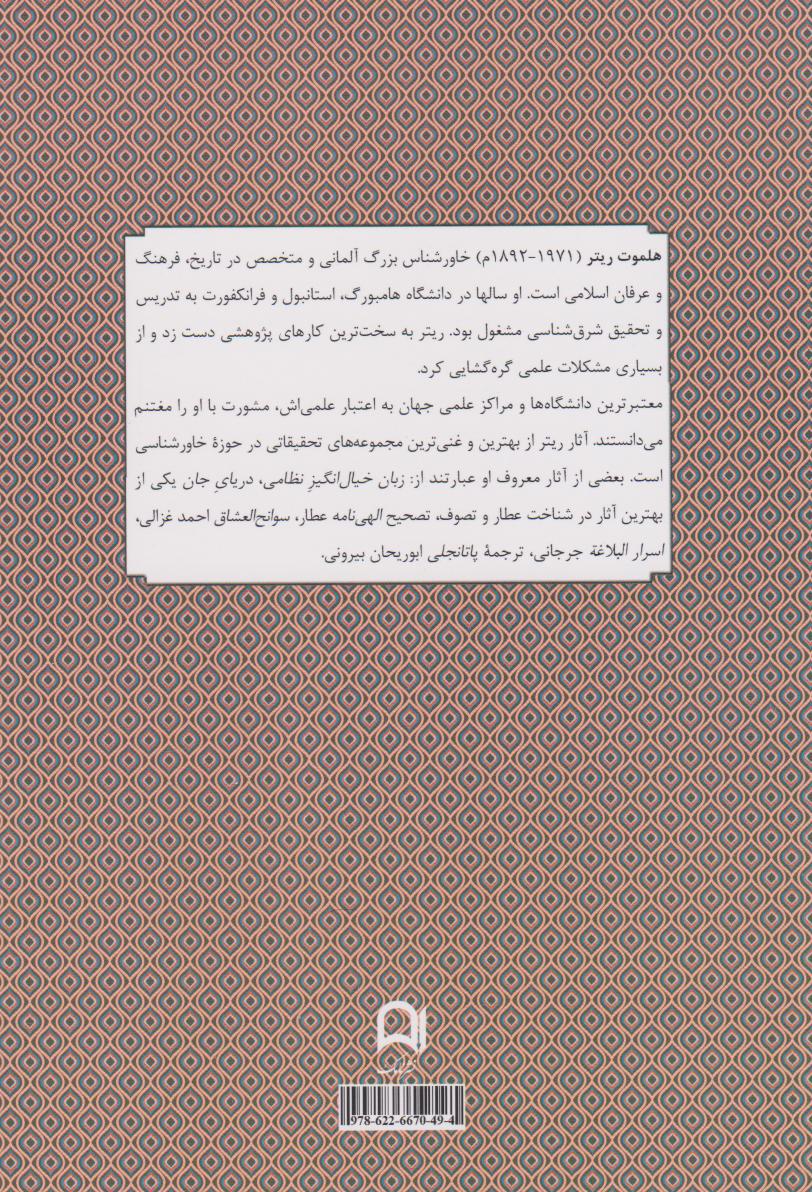 هلموت ریتر (۱۹۷۱-۱۸۹۲م) خاورشناس بزرگ آلمانی و متخصص در تاریخ، فرهنگ
و عرفان اسلامی است. او سالها در دانشگاه هامبورگ، استانبول و فرانکفورت به تدریس
و تحقیق شرق‌شناسی مشغول بود. ریتر به سخت‌ترین کارهای پژوهشی دست زد و از
بسیاری مشکلات علمی گره‌گشایی کرد.
معتبرترین دانشگاه‌ها و مراکز علمی جهان به اعتبار علمی‌اش، مشورت با او را مغتنم
می‌دانستند. آثار ریتر از بهترین و غنی‌ترین مجموعه‌های تحقیقاتی در حوزهٔ خاورشناسی
است. بعضی از آثار معروف او عبارتند از: زبان خیال‌انگیزِ نظامی، دریایِ جان یکی از
بهترین آثار در شناخت عطار و تصوف، تصحیح الهی‌نامه عطار، سوانح‌العشاق احمد غزالی،
اسرار البلاغة جرجانی، ترجمهٔ پاتانجلی ابوریحان بیرونی.
978-622-6670-49-4